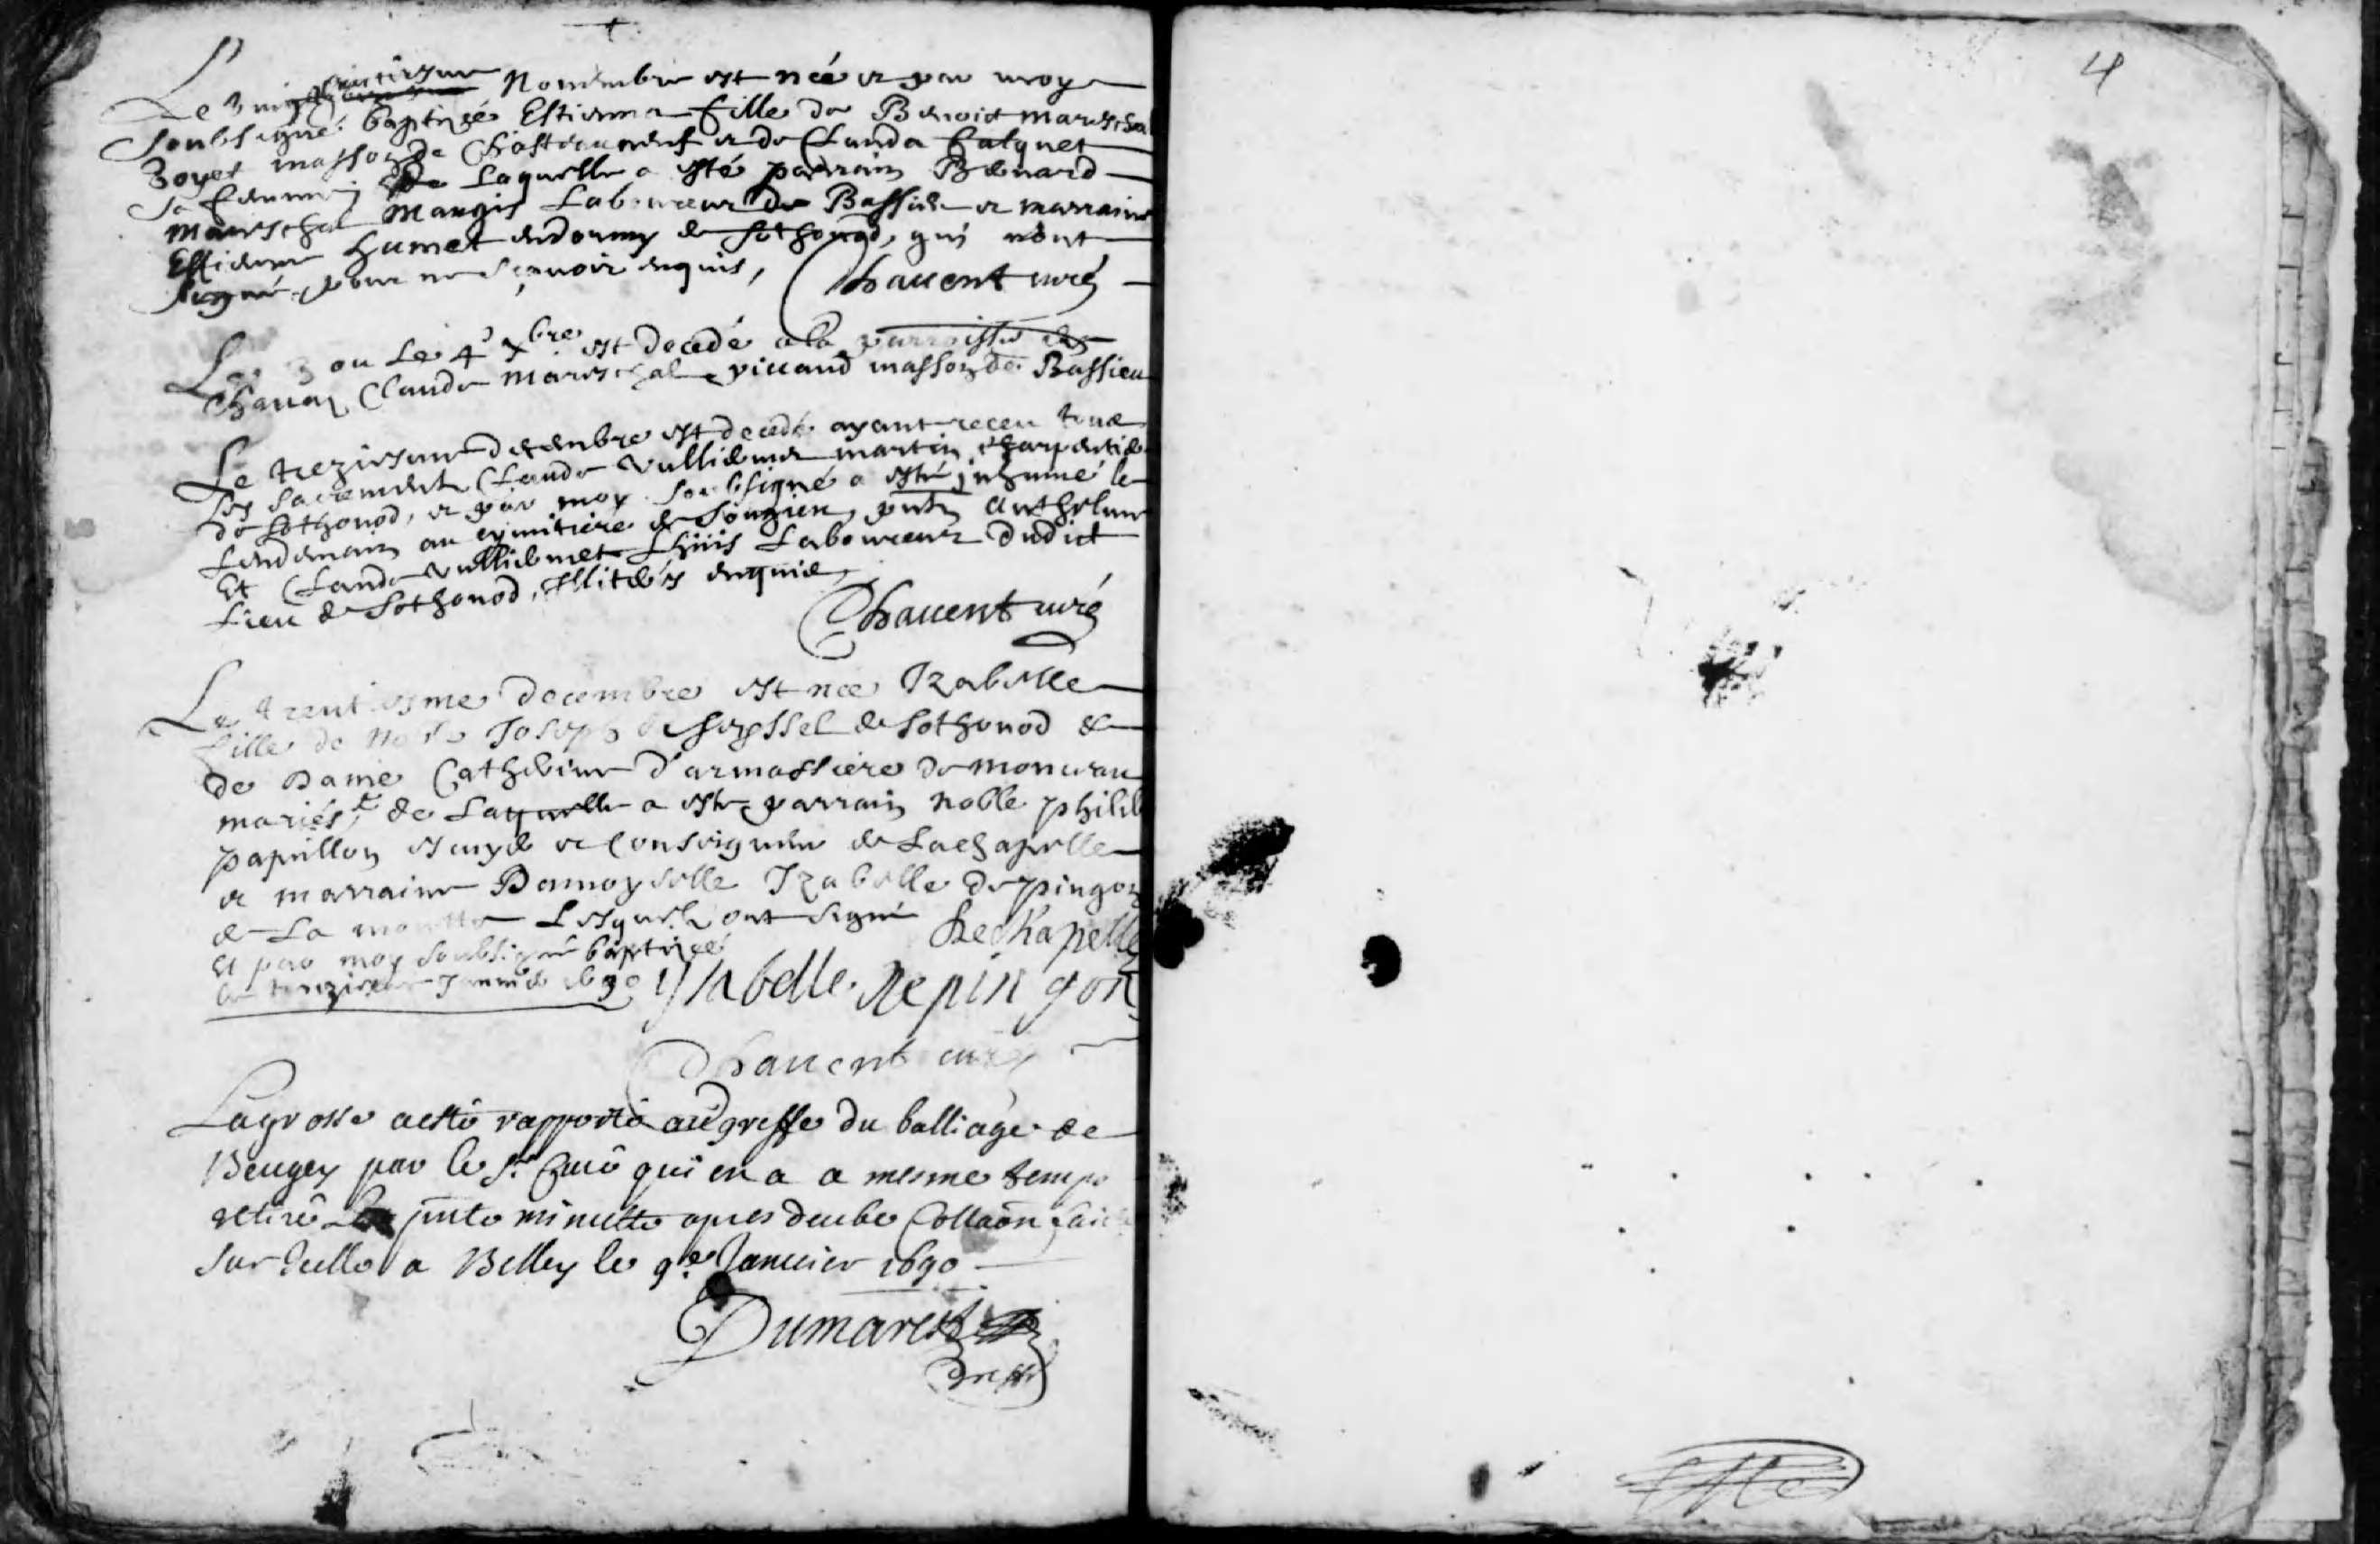 Le vingt huictiesme Novembre est née et par moy
soubsigné baptizée Estienna fille de Benoict mareschal
masson de Chasteauneuf et de Clauda Calquet
sa femme de Laquelle a esté parrain Benard
mareschal Mangis Laboureur de Bassieu et marraine
Estienne Humet de Sothonod, qui n'ont
signé pour ne sçavoir enquis, Chavent curé
Le 3 ou Le 4e xbre est decedé a la parroisse de
Chanay Claude mareschal piccand masson de Bassieu
Le treziesme decembre est decedé ayant receu tous
ses sacrements Claude Vulliemer martin charpentier
de Sothonod, et par moy soubsigné a esté inhumé le
Lendemain au cymitiere de Songieu, pnts Anthelme
Et Claude Vulliemet Laboureurs dudict
Lieu de Sothonod, illiterés enquis
Chavent curé
Le trentiesme decembre est née Izabelle
fille de Noble Joseph de Seyssel de Sothonod &
de Dame Catherine d'armassiere de monceau
mariés, de Laquelle a esté parrain noble philib
papillon escuyer et Conseigneur de Lachapelle
et marraine Damoyselle Izabelle de pingon
de La Lesquels ont signé
Et par moy soubsigné baptizée Lachapelle
le Janvier 1690 ysabelle de pingon
Chavent curé
La grosse a esté rapporté au greffe du balliage de
Beugey par le Sr Curé qui en a a mesme temps
retiré la pnte minutte apres deube Collaõn faicte
sur Icelle a Belley le 9e Janvier 1690
Dumarest
4